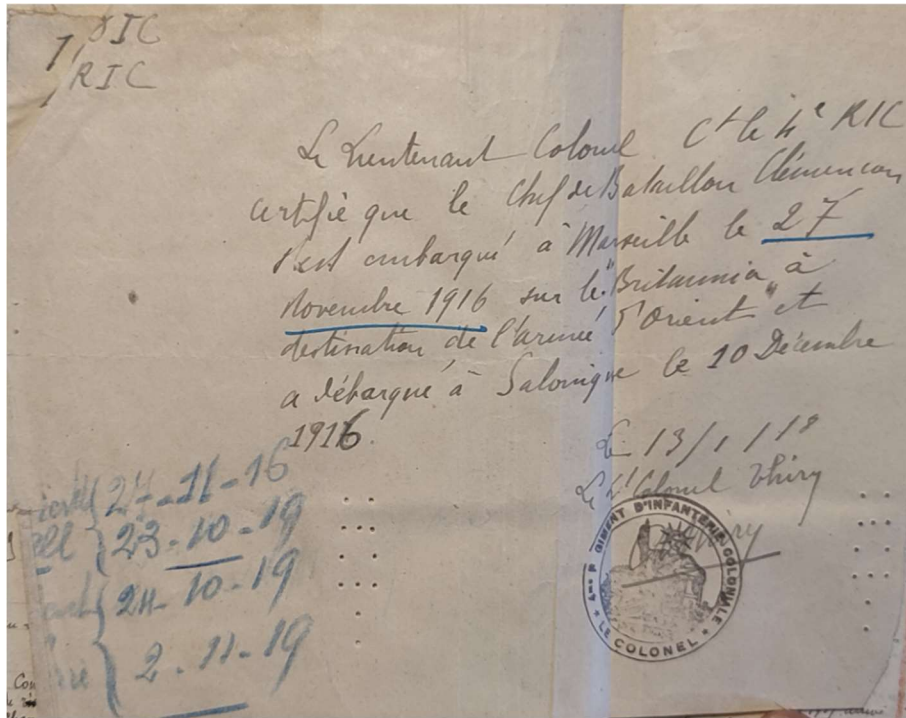 RIC
Le Lieutenant Colonel Ct le 4e RIC
certifie que le Chef de Bataillon Clémençon
s'est embarqué à Marseille le 27
Novembre 1916 sur le "Britannia" à
destination de l'armée d'Orient et
a débarqué à Salonique le 10 Décembre
1916.
Le 13/1/18
Le Lt Colonel Thiry
4me RÉGIMENT D'INFANTERIE COLONIALE
* LE COLONEL *
24-11-16
23-10-19
24-10-19
2-11-19